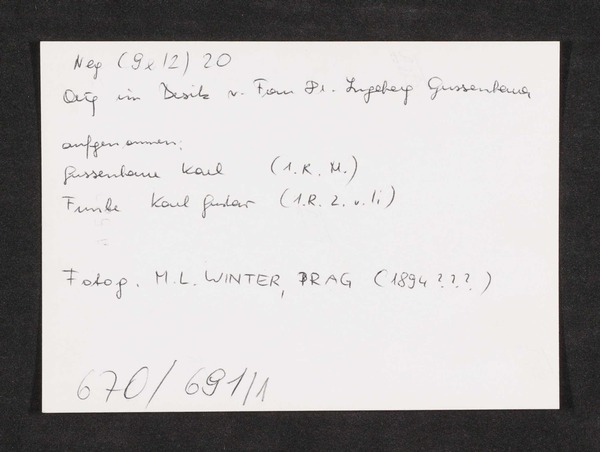 Neg (9x12) 20
Orig im Besitz v. Frau Dr. Ingeborg Gussenbauer
aufgenommen:
Gussenbauer Karl (1. R. M.)
Funke Karl Gustav (1.R. 2. v. li)
Fotog. M.L. WINTER, PRAG (1894???)
670/691/1